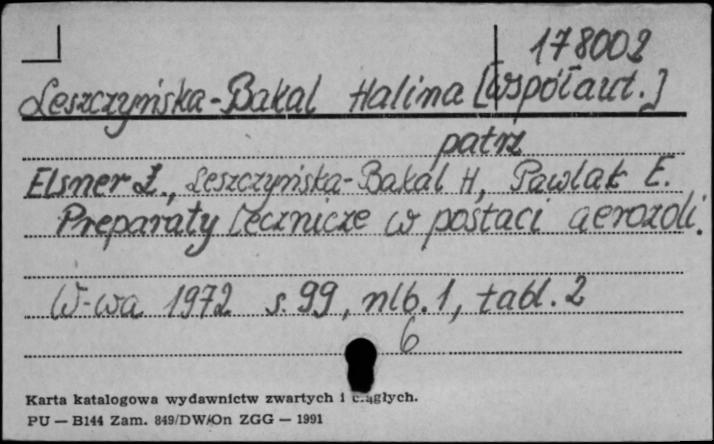 178002
Leszczyńska-Bakal Halina [współaut.]
patrz
Elsner Z., Leszczyńska-Bakal H, Pawlak E.
Preparaty lecznicze w postaci aerozoli.
W-wa 1972 s. 99, nlb. 1, tabl. 2
6
Karta katalogowa wydawnictw zwartych i ciągłych.
PU — B144 Zam. 849/DW/On ZGG — 1991